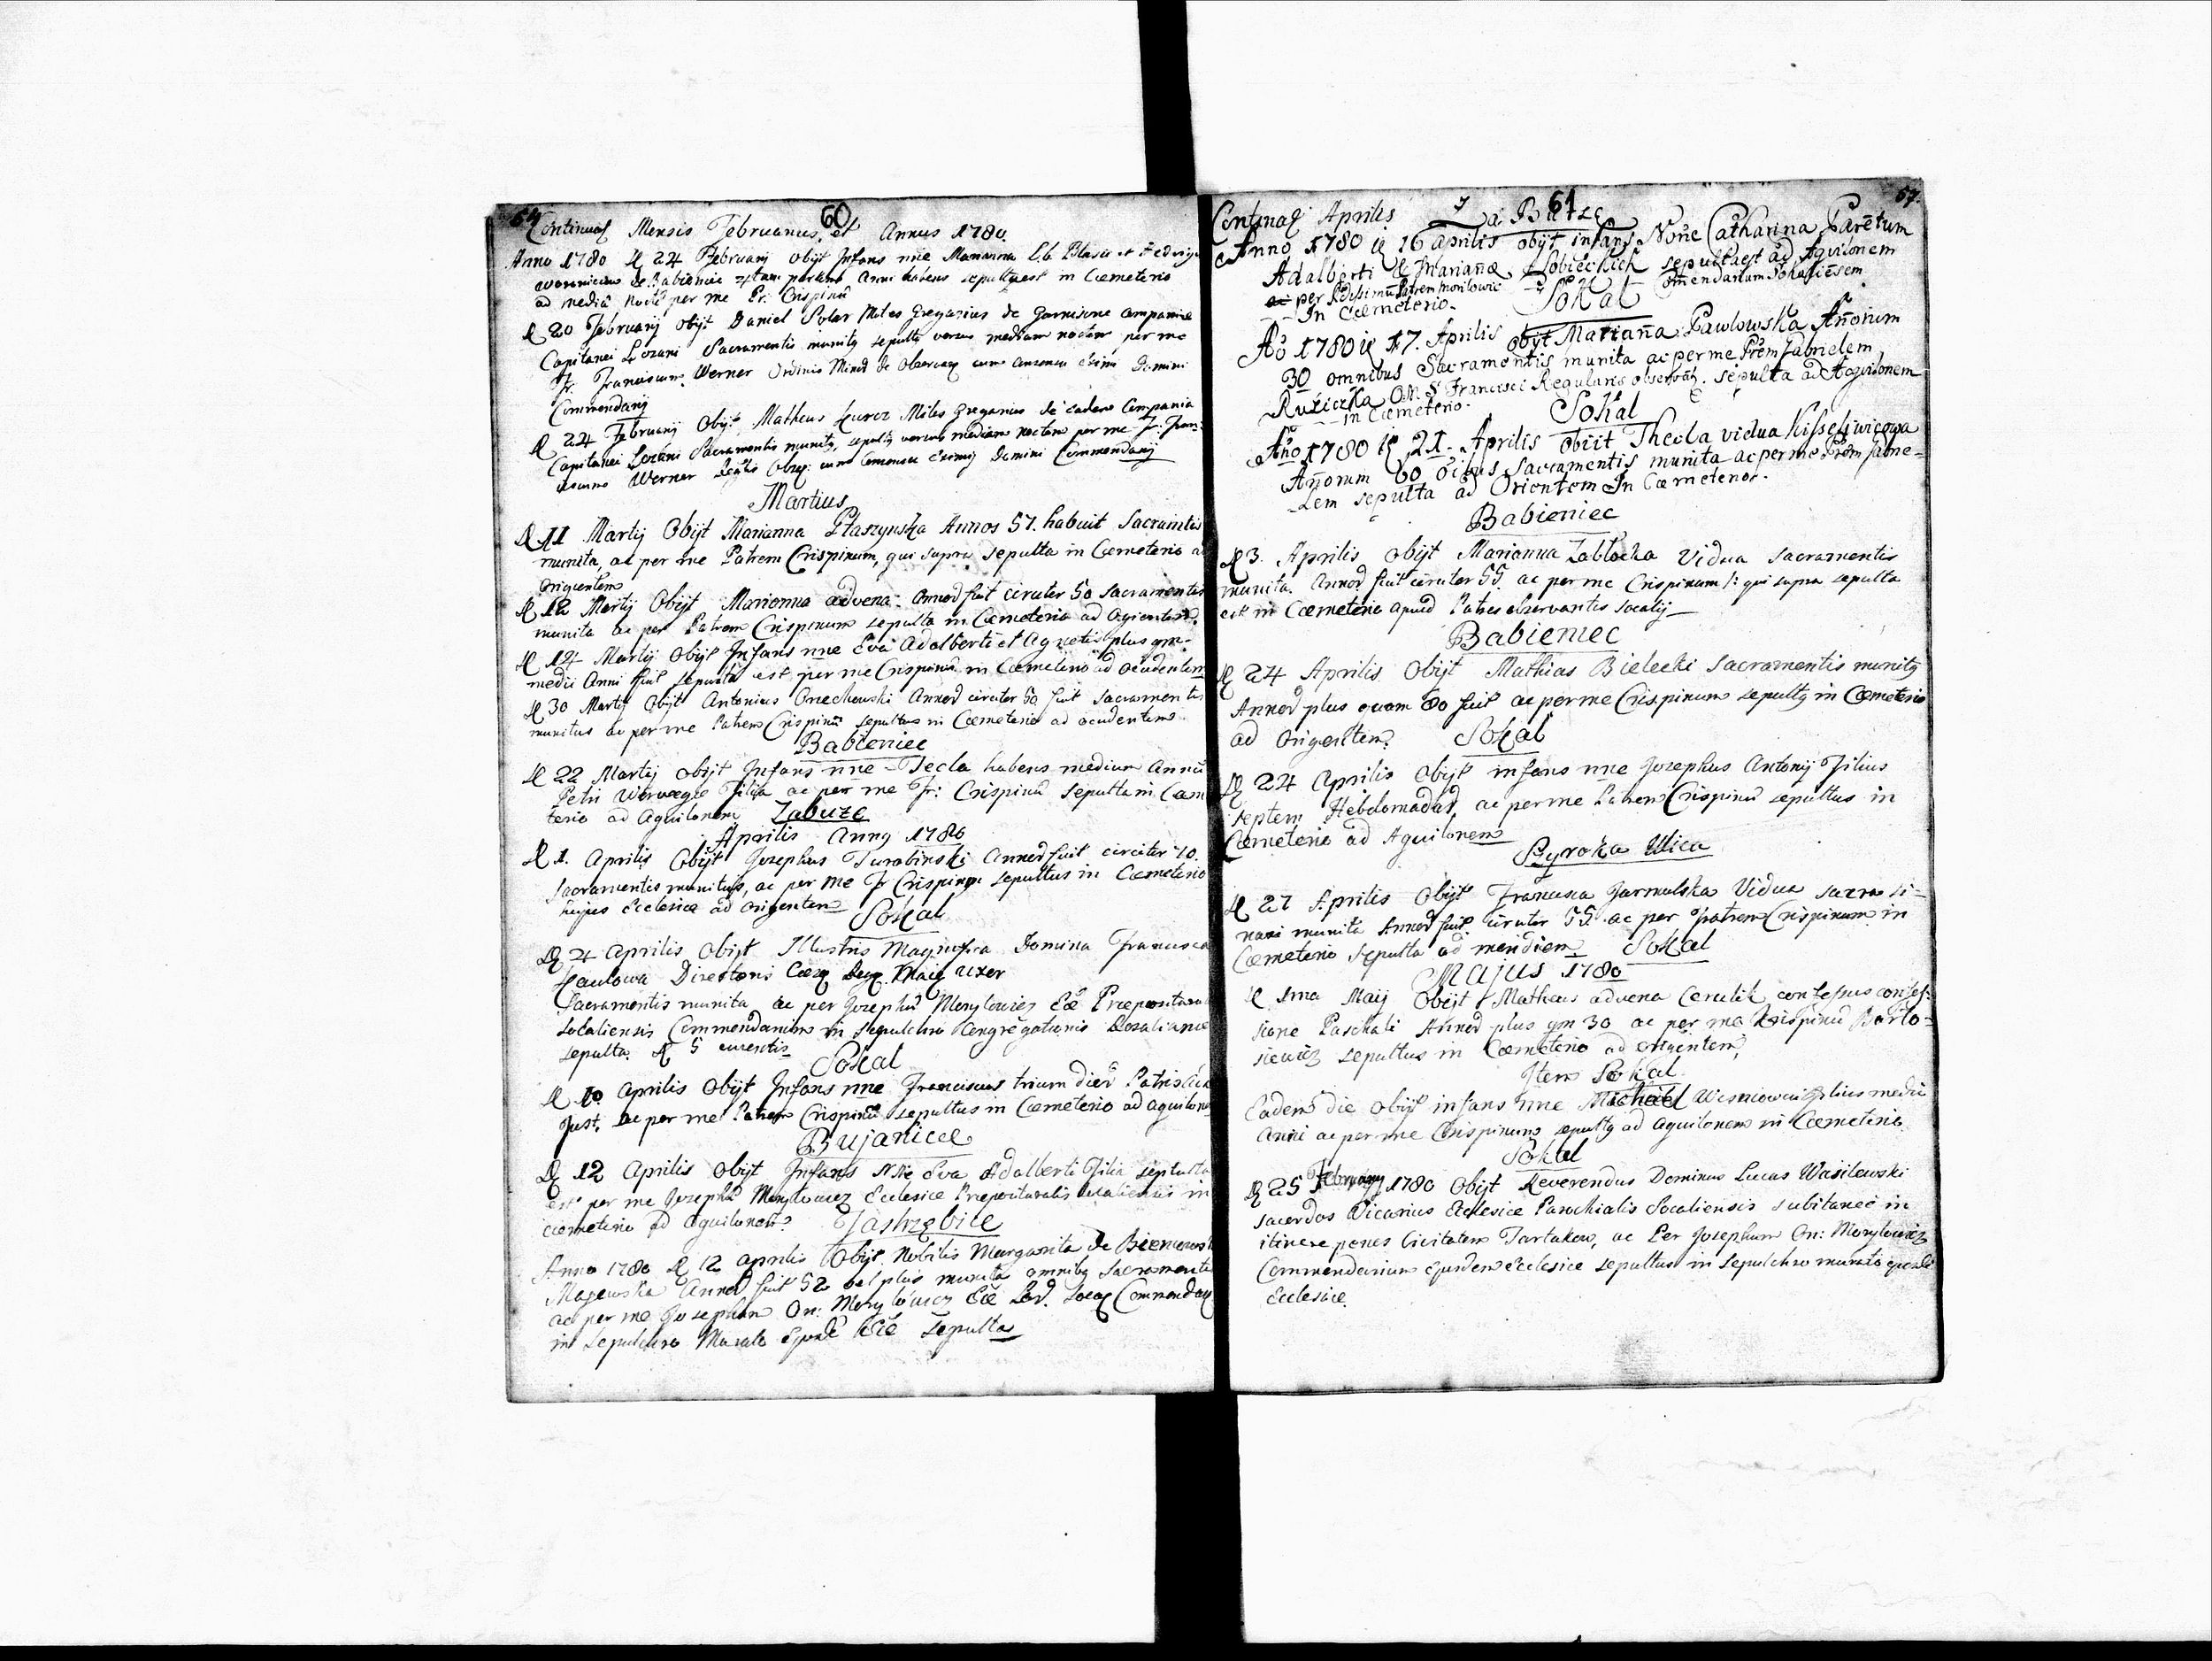 60
Continuat Mensis Februarius, et Annus 1780.
Anno 1780 d 24 Februarij Obijt Infans nne Marianna L.C. Blasii et Hedvigi
de Babieniec partem Anni habens sepulta est in Cœmeterio
ad mediã noctẽ per me Fr: Crispinũ
d 20 Februarij Obijt Daniel Polar Miles Gregarius de Garnisone Companiæ
Capitanei Lozani Sacramentis munitq sepultq versus mediam noctem per me
Fr. Franciscum Werner Ordinis Minor de Observ cum Domini
Commendarij
d 24 Februarij Obijt Matheus Miles Gregarius de eadem Compania
Capitanei Lozani Sacramentis munitq, sepultq versus mediam noctem per me Fr. Fran
Werner cum Domini Commendarij
Martius
d 11 Martij Obijt Marianna Ptaszynska Annos 57. habuit Sacramentis
munita, ac per me Patrem Crispinum, qui supra sepulta in Cœmeterio ad
Orientem
d 12 Martij Obijt Marianna advena. Annor fuit circiter 50 Sacramentis
munita ac per Patrem Crispinum sepulta in Cœmeterio ad Orientem.
d 14 Martij Obijt Infans nne Eva Adalberti et Agnetis plus qm
medii Anni fuit sepulta est per me Crispinũ in Cœmeterio ad occidentem
d 30 Martij Obijt Antonius Orzechowski Annor circiter 50 fuit Sacramentis
munitus ac per me Patrem Crispinũ sepultus in Cœmeterio ad occidentem.
Babieniec
d 22 Martij obijt Infans nne Tecla habens medium Annũ
Petri Filia ac per me Fr: Crispinũ sepulta in Cœme
terio ad Aquilonem Zabuze
Aprilis Annq 1780
d 1. Aprilis Obijt Josephus Turobinski Annor fuit circiter 70.
Sacramentis munitus, ac per me Fr Crispinum sepultus in Cœmeterio
hujus Ecclesiæ ad Orientem Sokal
d 4 Aprilis Obijt Illustris Magnifica Domina Francisca
Directoris Uxor
Sacramentis munita ac per Josephũ Morylowicz Ecc Præposituralis
Socaliensis Commendarium in sepulchro Congregationis Rosalianæ
sepulta. d 5 currentis
Sokal
d 10 Aprilis Obijt Infans nne Franciscus trium dier
Just. ac per me Patrem Crispinũ sepultus in Cœmeterio ad aquilone
Bujanice
d 12 Aprilis Obijt Infans Nne Eva Adalberti Filia sepulta
est per me Josephũ Morylowicz Ecclesiæ Præposituralis Socaliensis in
cœmeterio ad aquilonem. Jastrzębice
Anno 1780 d 12 Aprilis Obijt Nobilis Margarita de
Majewska Annor fuit 52 vel plus munita omnibq Sacramentis
ac per me Josephum On: Morylowicz Commendar
in sepulchro Murato Ejusd Ecclæ sepulta
61
57.
Continaq Aprilis Zá Buże
Anno 1780 d 16 Aprilis obijt infans None Catharina Parẽtum
Adalberti & Mariañæ Sobieckich sepulta est ad Aqvilonem
ac per Rdissimũ Patrem Morilowic Comendarium Sokaliẽsem
In Cœmeterio. Sokal
Aõ 1780 d 17. Aprilis obijt Mariaña Pawlowska Añorum
30 omnibus Sacramentis munita ac per me Prẽm Gabrielem
Ružiczka O.M.S. Francisci Regularis observãt. sepulta ad Aqvilonem
in Cœmeterio. Sokal
Año 1780 d 21. Aprilis obiit Thecla vidua
Añorum 60 oĩbus Sacramentis munita ac per me Prẽm Gabrie=
Lem sepulta ad Orientem In Cœmeterio.
Babieniec
d 3. Aprilis Obijt Marianna Zablocka Vidua Sacramentis
munita. Annor fuit circiter 55. ac per me Crispinum /: qui supra sepulta
est in Cœmeterio apud Patres observantes Socalij
Babieniec
d 24 Aprilis Obijt Mathias Bielecki Sacramentis munitq
Annor plus quam 80 fuit ac per me Crispinum sepultq in Cœmeterio
ad Orientem. Sokal
d 24 Aprilis Obijt infans nne Josephus Antonij Filius
septem Hebdomadar ac per me Patrem Crispinũ sepultus in
Cœmeterio ad Aquilonem
Szyroka Ulica
d 27 Aprilis Obijt Francisca Jarmulska Vidua
munita Annor fuit circiter 55. ac per Patrem Crispinum in
Cœmeterio sepulta ad meridiem Sokal
Majus 1780
d 1ma Maij Obijt Matheus advena confessus confes-
sione Paschali Annor plus qm 30 ac per me Krispinũ Barto=
siewicz sepultus in Cœmeterio ad orientem,
Item Sokal.
Eadem die obijt infans nne Michael filius medii
Anni ac per me Crispinum sepultq ad aquilonem in Cœmeterio
Sokal
d 25 Februarij 1780 Obijt Reverendus Dominus Lucas Wasilewski
sacerdos Vicarius Ecclesiæ Parochialis Socaliensis subitanee in
itinere penes Civitatem Tartakow, ac Per Josephum On: Morylowicz
Commendarium ejusdem Ecclesiæ sepultus in sepulchro murato ejusde
Ecclesiæ.